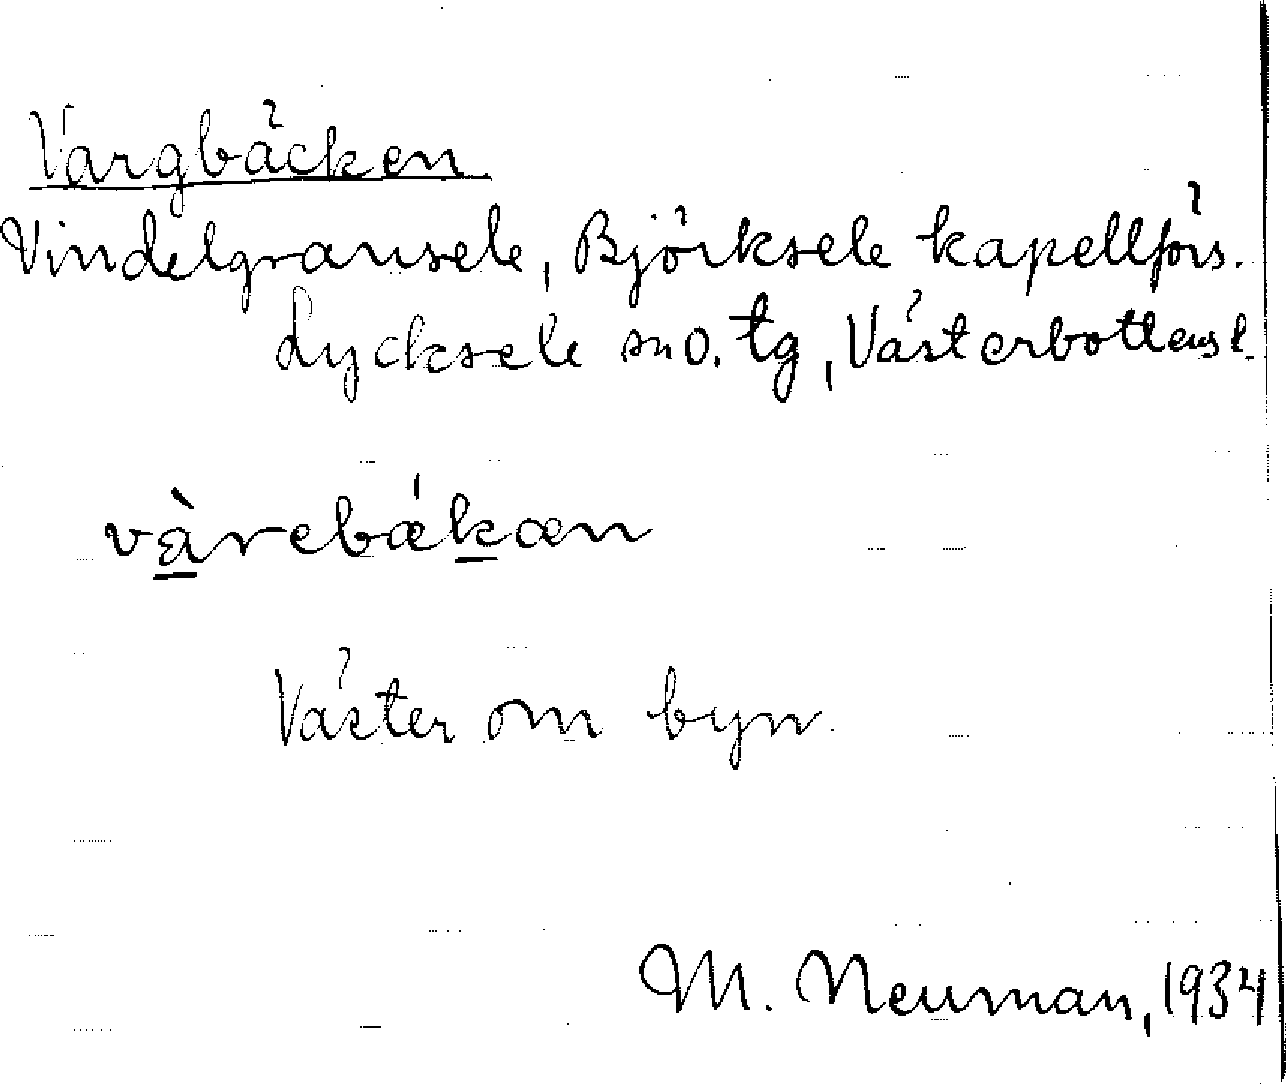 Vargbäcken
Vindelgransele, Björksele kapellförs.
Lycksele sn o. tg, Västerbottens l.
vàrebǽkæn
Väster om byn.
M. Neuman, 1934